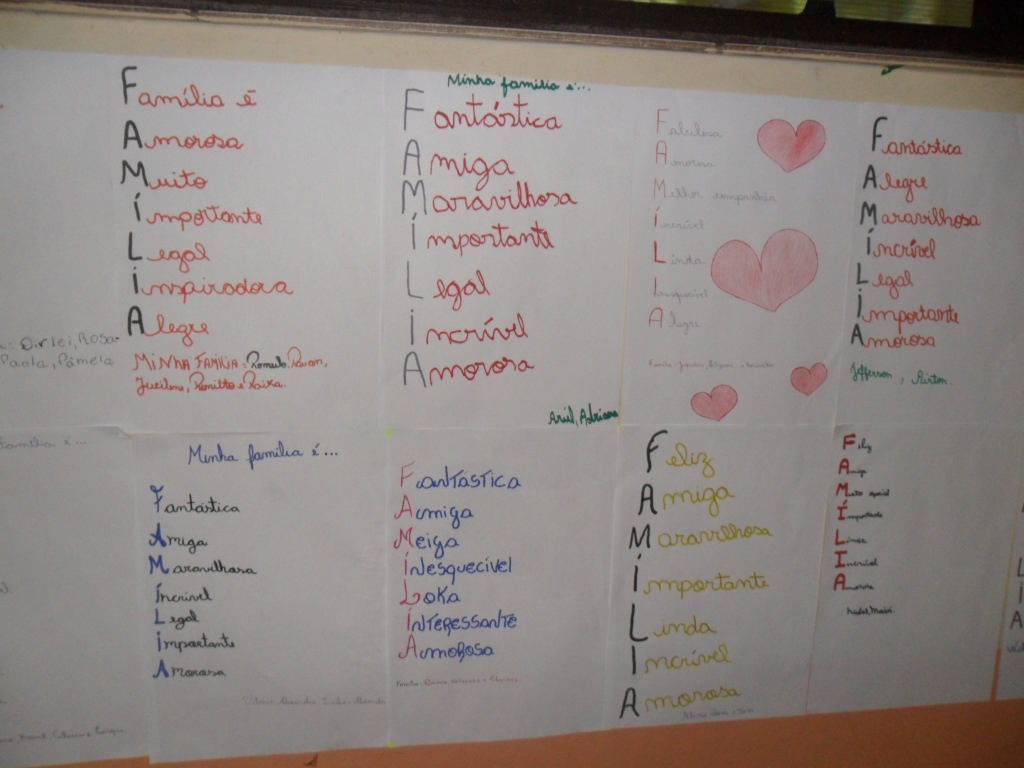 Família é
Amorosa
Muito
importante
Legal
inspiradora
Alegre
MINHA FAMÍLIA: Romulo, Renan,
Jucilene, Romilto e Raika.
Oirlei, Rosa
Paola, Pâmela
Minha família é...
Fantástica
Amiga
Maravilhosa
importante
Legal
incrível
Amorosa
Ariel, Adriana
Fabulosa
Amorosa
Melhor companhia
incrível
Linda
Inesquecível
Alegre
Fantástica
Alegre
Maravilhosa
incrível
Legal
importante
Amorosa
Jefferson, Airton.
família é...
Minha família é...
Fantástica
Amiga
Maravilhosa
incrivel
Legal
importante
Amorosa
FANTÁSTICA
Amiga
Meiga
inesquecivel
LOKA
iNTERESSANTE
AmoROSA
Feliz
Amiga
Maravilhosa
importante
Linda
Incrível
Amorosa
Feliz
Amiga
Muito especial
importante
Linda
Incrível
Amorosa
L
I
A